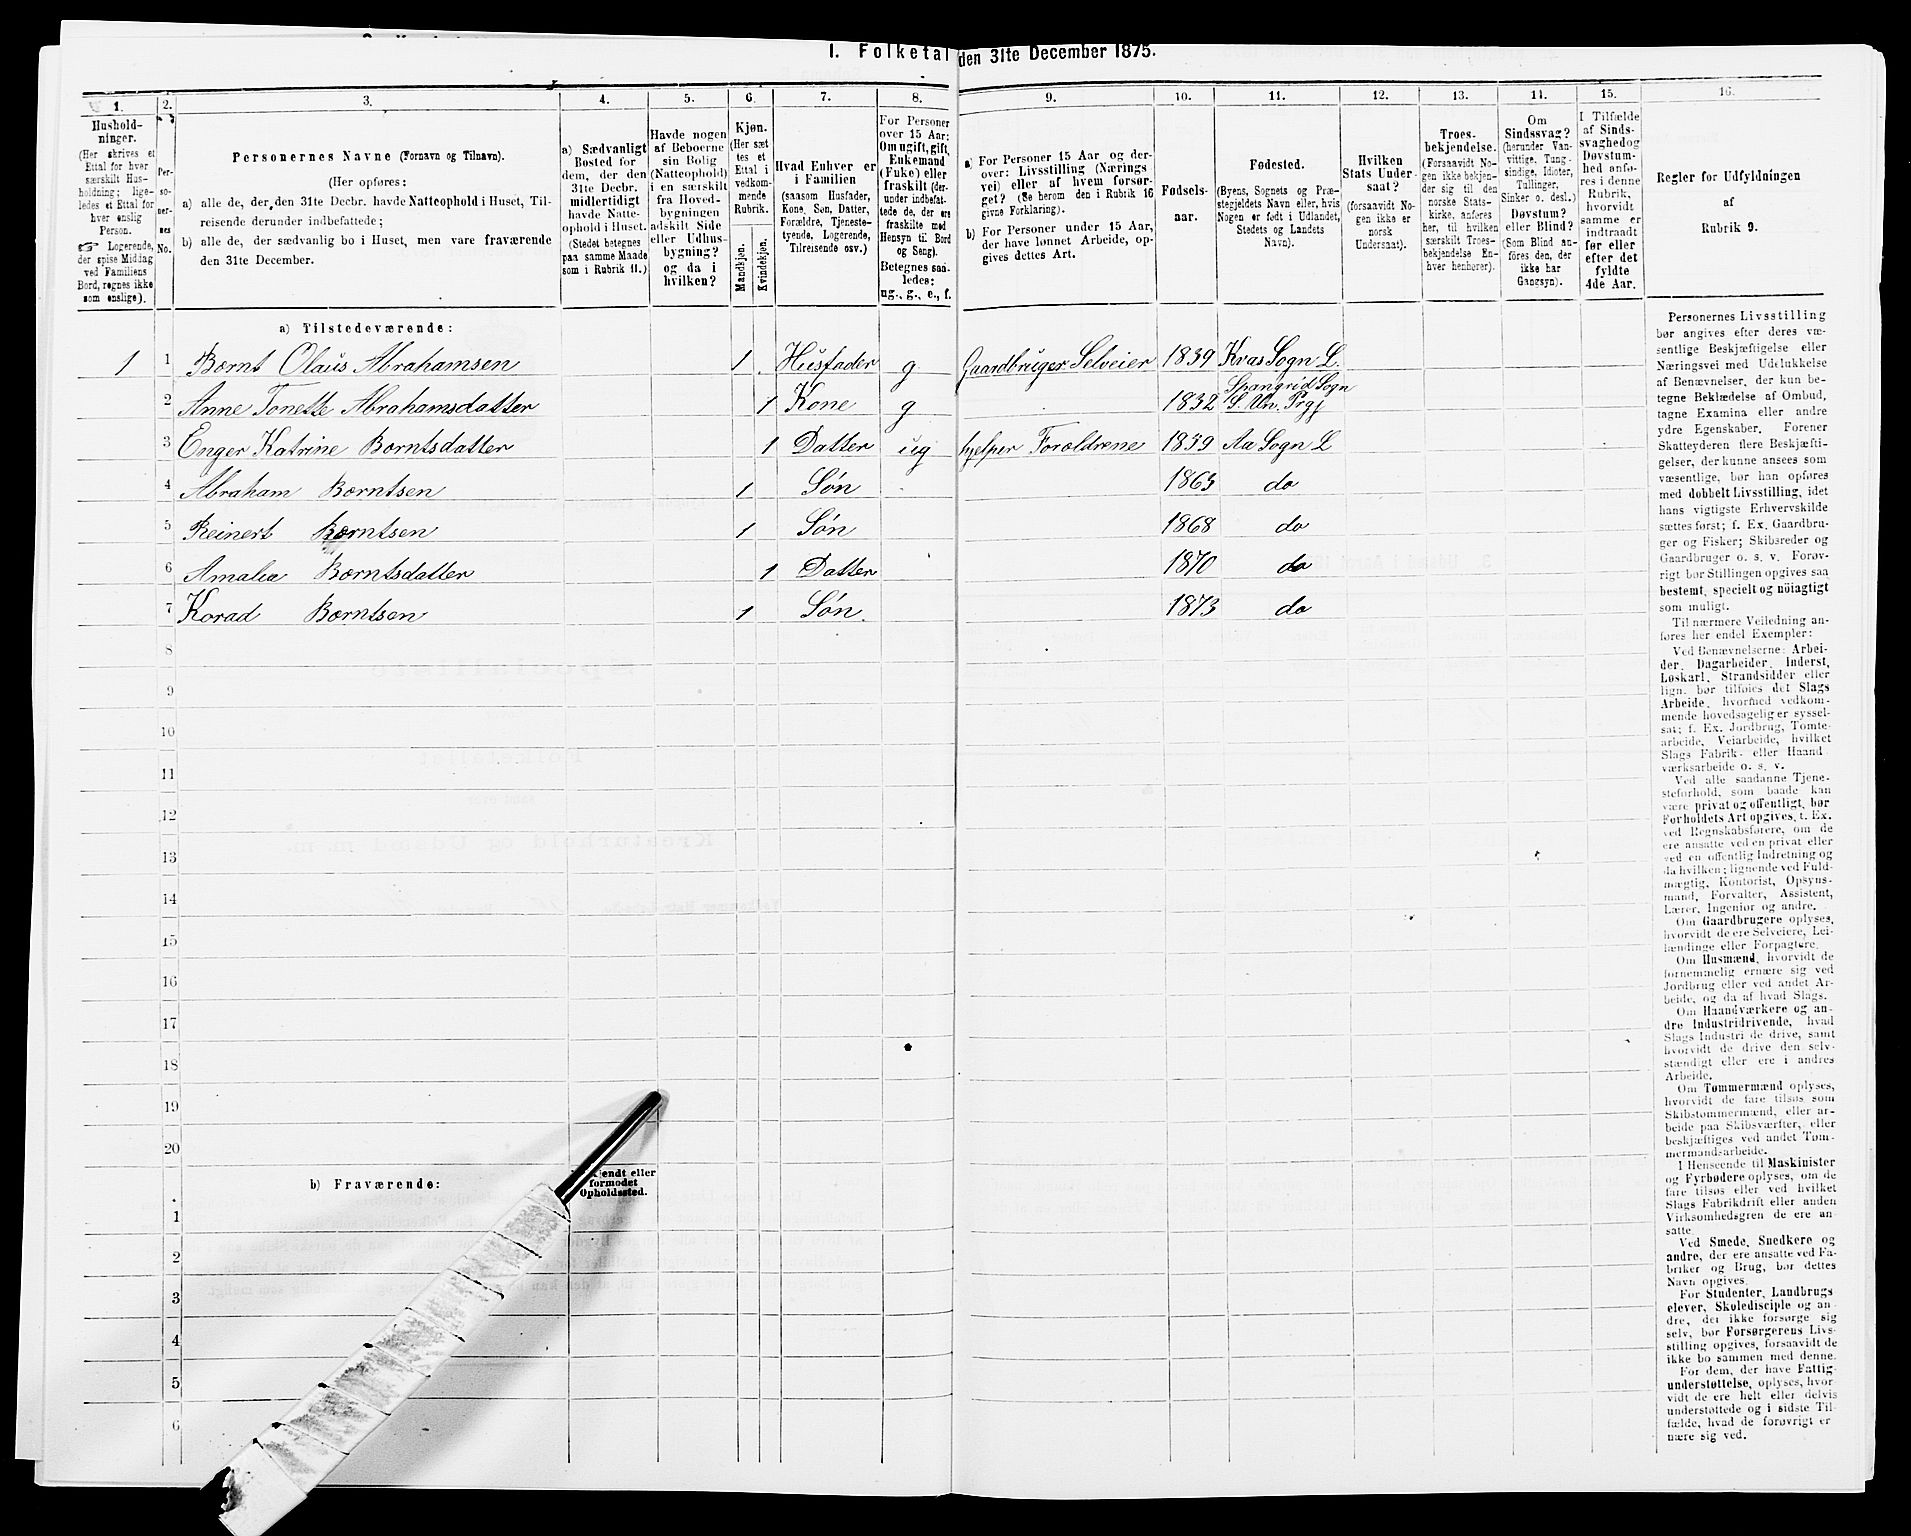 I. Folketal den 31te December 1875.
1.
Hushold-
ninger.
(Her skrives et
Ettal for hver
særskilt Hus-
holdning; lige-
ledes et Ettal for
hver enslig
Person.
☞ Logerende,
der spise Middag
ved Familiens
Bord, regnes ikke
som enslige).
2.
Per-
so-
ner-
nes
No.
3.
Personernes Navne (Fornavn og Tilnavn).
(Her opføres:
a) alle de, der den 31te Decbr. havde Natteophold i Huset, Til-
reisende derunder indbefattede;
b) alle de, der sædvanlig bo i Huset, men vare fraværende
den 31te December.
4.
a) Sædvanligt
Bosted for
dem, der den
31te Decbr.
midlertidigt
havde Natte-
ophold i Huset.
(Stedet betegnes
paa samme Maade
som i Rubrik 11.)
5.
Havde nogen
af Beboerne
sin Bolig
(Natteophold)
i en særskilt
fra Hoved-
bygningen
adskilt Side
eller Udhus-
bygning?
og da i
hvilken?
6.
Kjøn.
(Her sæt-
tes et
Ettal i
vedkom-
mende
Rubrik.
Mandkjøn.
Kvindekjøn.
7.
Hvad Enhver er
i Familien
(saasom Husfader,
Kone, Søn, Datter,
Forældre, Tjeneste-
tyende, Logerende,
Tilreisende osv.)
8.
For Personer
over 15 Aar:
Om ugift, gift,
Enkemand
(Enke) eller
fraskilt (der-
under indbefat-
tede de, der ere
fraskilte med
Hensyn til Bord
og Seng).
Betegnes saa-
ledes:
ug., g., e., f.
9.
a) For Personer 15 Aar og der-
over: Livsstilling (Nærings-
vei) eller af hvem forsør-
get? (Se herom den i Rubrik 16
givne Forklaring).
b) For Personer under 15 Aar,
der have lønnet Arbeide, op-
gives dettes Art.
10.
Fødsels-
aar.
11.
Fødested.
(Byens, Sognets og Præ-
stegjeldets Navn eller, hvis
Nogen er født i Udlandet,
Stedets og Landets
Navn).
12.
Hvilken
Stats Under-
saat?
(forsaavidt No-
gen ikke er
norsk
Undersaat).
13.
Troes-
bekjendelse.
(Forsaavidt No-
gen ikke bekjen-
der sig til den
norske Stats-
kirke, anføres
her, til hvilken
særskilt Troes-
bekjendelse En-
hver henhører).
14.
Om
Sindssvag?
(herunder Van-
vittige, Tung-
sindige, Idioter,
Tullinger,
Sinker o. desl.)
Døvstum?
eller Blind?
(Som Blind an-
føres den, der
ikke har
Gangsyn).
15.
I Tilfælde
af Sinds-
svaghed og
Døvstum-
hed anfø-
res i denne
Rubrik,
hvorvidt
samme er
indtraadt
før eller
efter det
fyldte
4de Aar.
16.
Regler for Udfyldningen
af
Rubrik 9.
a) Tilstedeværende:
1 1 Bærnt Olaus Abrahamsen 1 Husfader g Gaardbruger Selveier 1839 Kvas Sogn L.
2 Anne Tonette Abrahamsdatter 1 Kone g 1832 Spangrid Sogn
S. Un. Prgj
3 Enger Katrine Bærntsdatter 1 Datter ug hjelper Forældrene 1859 Aa Sogn L
4 Abraham Bærntsen 1 Søn 1863 do
5 Reinert Bærntsen 1 Søn 1868 do
6 Amalia Bærntsdatter 1 Datter 1870 do
7 Korad Bærntsen 1 Søn. 1873 do
8
9
10
11
12
13
14
15
16
17
18
19
20
b) Fraværende:
eller
formodet
Opholdssted.
1
2
3
4
5
6
Personernes Livsstilling
bør angives efter deres væ-
sentlige Beskjæftigelse eller
Næringsvei med Udelukkelse
af Benævnelser, der kun be-
tegne Beklædelse af Ombud,
tagne Examina eller andre
ydre Egenskaber. Forener
Skatteyderen flere Beskjæfti-
gelser, der kunne ansees som
væsentlige, bør han opføres
med dobbelt Livsstilling, idet
hans vigtigste Erhvervskilde
sættes først; f. Ex. Gaardbru-
ger og Fisker; Skibsreder og
Gaardbruger o. s. v. Forøv-
rigt bør Stillingen opgives saa
bestemt, specielt og nöiagtigt
som muligt.
Til nærmere Veiledning an-
føres her endel Exempler:
Ved Benævnelserne: Arbei-
der, Dagarbeider, Inderst,
Løskarl, Strandsidder eller
lign. bør tilføies det Slags
Arbeide, hvormed vedkom-
mende hovedsagelig er syssel-
sat; f. Ex. Jordbrug, Tømte-
arbeide, Veiarbeide, hvilket
Slags Fabrik- eller Haand-
værksarbeide o. s. v.
Ved alle saadanne Tjene-
steforhold, som baade kan
være privat og offentligt, bør
Forholdets Art opgives, f. Ex.
ved Regnskabsførere, om de
ere ansatte ved en privat eller
ved en offentlig Indretning og
da hvilken; lignende ved Fuld-
mægtig, Kontorist, Opsyns-
mand, Forvalter, Assistent,
Lærer, Ingeniør og andre.
Om Gaardbrugere oplyses,
hvorvidt de ere Selveiere, Lei-
lændinge eller Forpagtere.
Om Husmænd, hvorvidt de
fornemmelig ernære sig ved
Jordbrug eller ved andet Ar-
beide, og da af hvad Slags.
Om Haandværkere og an-
dre Industridrivende, hvad
Slags Industri de drive, samt
hvorvidt de drive den selv-
stændigt eller ere i andres
Arbeide.
Om Tømmermænd oplyses,
hvorvidt de fare tilsøs som
Skibstømmermænd, eller ar-
beide paa Skibsværfter, eller
beskjæftiges ved andet Tøm-
mermandsarbeide.
I Henseende til Maskinister
og Fyrbødere oplyses, om de
fare tilsøs eller ved hvilket
Slags Fabrikdrift eller anden
Virksomhedsgren de ere an-
satte.
Ved Smede, Snedkere og
andre, der ere ansatte ved Fa-
briker og Brug, bør dettes
Navn opgives.
For Studenter, Landbrugs-
elever, Skoledisciple og an-
dre, der ikke forsørge sig
selv, bør Forsørgerens Livs-
stilling opgives, forsaavidt de
ikke bo sammen med denne.
For dem, der have Fattig-
understøttelse, oplyses, hvor-
vidt de ere helt eller delvis
understøttede og i sidste Til-
fælde, hvad de forøvrigt er-
nære sig ved.